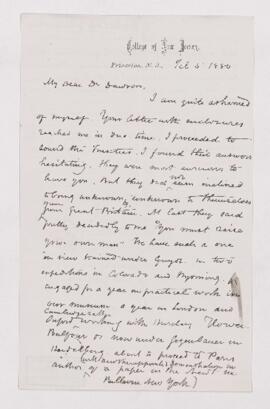 College of New Jersey,
Princeton, N. J., Feb 5 1880
My Dear Dr Dawson,
I am quite ashamed
of myself. Your letter with enclosures
reached me in due time. I proceeded to
sound the Trustees. I found their answers
hesitating. They were most anxious to
have you. But they did not seem inclined
to bring unknown, unknown to themselves
from Great Britain. At last they said
pretty decidedly to me "You must raise
your own man" We have such a one
in view trained under Guyot. in two
expeditions in Colorado and Wyoming,
engaged for a year in practical work in
our museum a year in London and
Cambridge
Oxford working with Huxley
Balfour is now under Gegenbauer in
Heidelberg about to proceed to Paris
author of a paper in the